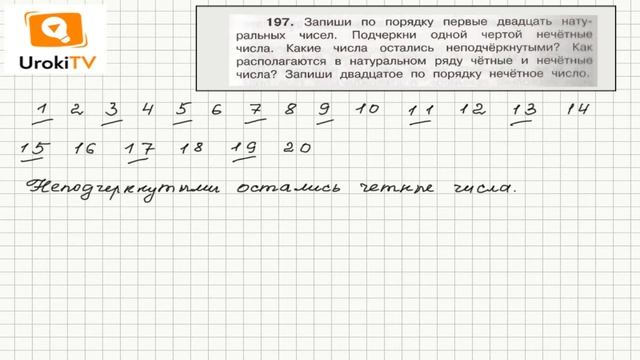 UrokiTV
197. Запиши по порядку первые двадцать нату-
ральных чисел. Подчеркни одной чертой нечётные
числа. Какие числа остались неподчёркнутыми? Как
располагаются в натуральном ряду чётные и нечётные
числа? Запиши двадцатое по порядку нечётное число.
1 2 3 4 5 6 7 8 9 10 11 12 13 14
15 16 17 18 19 20
Неподчеркнутыми остались четные числа.